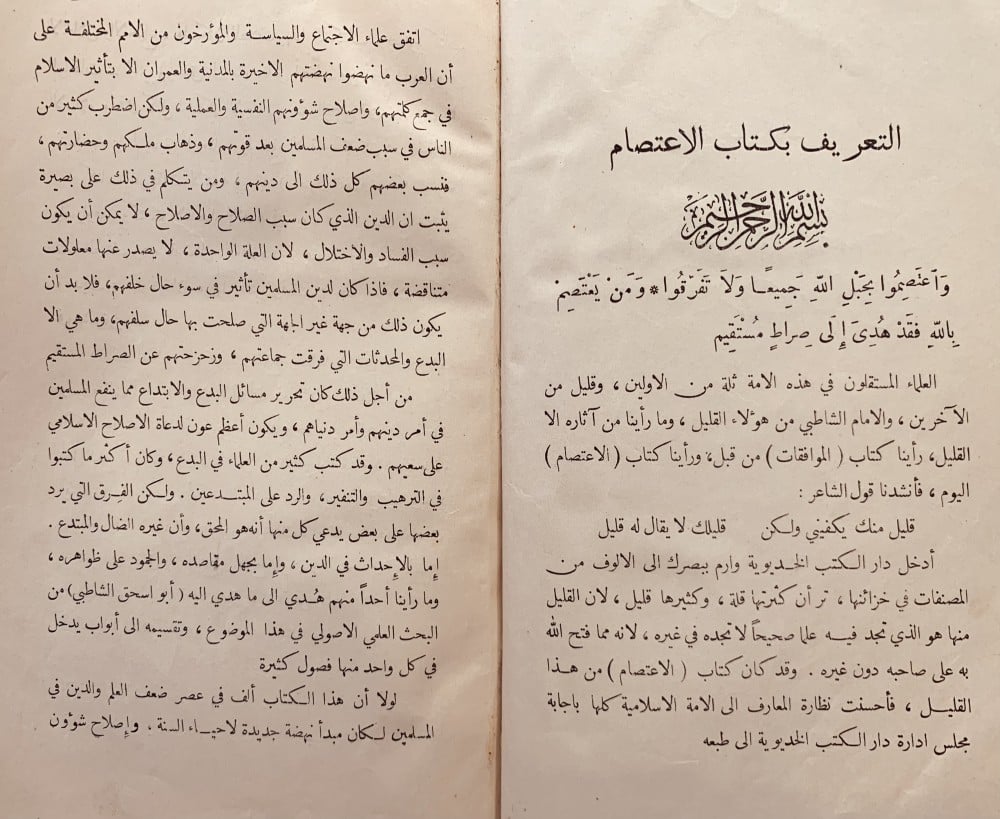 التعريف بكتاب الاعتصام
بسم الله الرحمن الرحيم
وَٱعْتَصِمُوا بِحَبْلِ اللّٰهِ جَمِيعًـا وَلَا تَفَرَّقُوا * وَمَنْ يَعْتَصِمْ
بِاللّٰهِ فَقَدْ هُدِىَ إِلَى صِراطٍ مُسْتَقِيمٍ
العلماء المستقلون في هذه الامة ثلة من الاولين ، وقليل من
الآخرين ، والامام الشاطبي من هؤلاء القليل ، وما رأينا من آثاره الا
القليل، رأينا كتاب ( الموافقات ) من قبل، ورأينا كتاب ( الاعتصام )
اليوم ، فأنشدنا قول الشاعر :
قليل منك يكفيني ولكن قليلك لا يقال له قليل
أدخل دار الكتب الخديوية وارم ببصرك الى الالوف من
المصنفات في خزائنها ، تر أن كثرتها قلة ، وكثيرها قليل ، لان القليل
منها هو الذي تجد فيه علما صحيحاً لا تجده في غيره ، لانه مما فتح الله
به على صاحبه دون غيره . وقد كان كتاب ( الاعتصام ) من هذا
القليل ، فأحسنت نظارة المعارف الى الامة الاسلامية كلها باجابة
مجلس ادارة دار الكتب الخديوية الى طبعه
اتفق علماء الاجتماع والسياسة والمؤرخون من الامم المختلفة على
أن العرب ما نهضوا نهضتهم الاخيرة بالمدنية والعمران الا بتأثير الاسلام
في جمع كلمتهم، واصلاح شؤونهم النفسية والعملية ، ولكن اضطرب كثير من
الناس في سبب ضعف المسلمين بعد قوتهم ، وذهاب ملكهم وحضارتهم ،
فنسب بعضهم كل ذلك الى دينهم ، ومن يتكلم في ذلك على بصيرة
يثبت ان الدين الذي كان سبب الصلاح والاصلاح ، لا يمكن أن يكون
سبب الفساد والاختلال ، لان العلة الواحدة ، لا يصدر عنها معلولات
متناقضة ، فاذا كان لدين المسلمين تأثير في سوء حال خلفهم، فلا بد أن
يكون ذلك من جهة غير الجهة التي صلحت بها حال سلفهم، وما هي الا
البدع والمحدثات التي فرقت جماعتهم ، وزحزحتهم عن الصراط المستقيم
من أجل ذلك كان تحرير مسائل البدع والابتداع مما ينفع المسلمين
في أمر دينهم وأمر دنياهم ، ويكون أعظم عون لدعاة الاصلاح الاسلامي
على سعيهم . وقد كتب كثير من العلماء في البدع ، وكان أكثر ما كتبوا
في الترهيب والتنفير ، والرد على المبتدعين . ولكن الفرق التي يرد
بعضها على بعض يدعي كل منها أنه هو المحق، وأن غيره الضال والمبتدع .
إما بالإحداث في الدين ، وإما بجهل مقاصده ، والجمود على ظواهره ،
وما رأينا أحداً منهم هُدي الى ما هدي اليه ( أبو اسحق الشاطبي ) من
البحث العلمي الاصولي في هذا الموضوع ، وتقسيمه الى أبواب يدخل
في كل واحد منها فصول كثيرة
لولا أن هذا الكتاب ألف في عصر ضعف العلم والدين في
المسلمين لكان مبدأ نهضة جديدة لاحياء السنة . وإصلاح شؤون